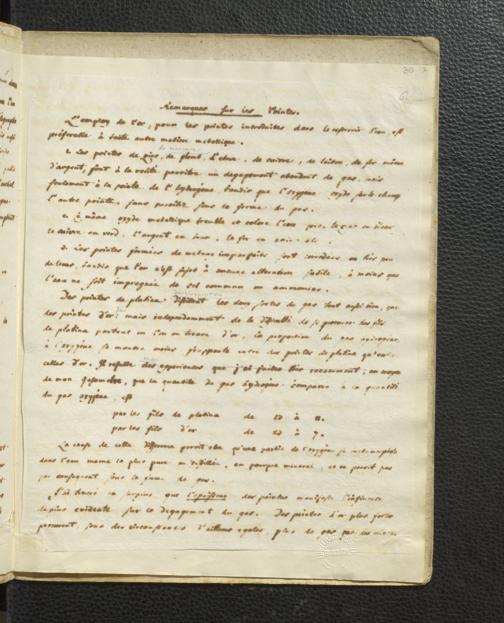 30
Remarques sur les Pointes.
L'employ de l'or, pour les pointes introduites dans le reservoir d'eau, est
préférable à toute autre matière métallique.
1. Les pointes de zinc, de plomb, d'etain, de cuivre, de laiton, de fer même
d'argent, font à la vérité paroitre un degagement abondant de gas, mais
seulement à la pointe de l'hydrogène, tandis que l'oxygène oxyde sur le champ
l'autre pointe, sans paroitre sous la forme de gas.
2. Le même oxyde metallique trouble et colore l'eau
le cuivre en verd, l'argent en, le fer en
3. Les pointes formées de metaux imparfaits sont corrodées en très peu
de tems, tandis que l'or n'est sujet à aucune alteration, à moins que
l'eau ne soit impregnée de sel commun ou ammoniac.
Des pointes de platina les deux sortes de gas tout aussi bien, que
des pointes d'or: mais independamment de la difficulté de se procurer des fils
de platina partout où l'on en trouve d'or, la proportion du gas hydrogène
à l'oxygène se montre moins entre des pointes de platina qu'entre
celles d'or. Il resulte des experiences que j'ai faites très recemment, au moyen
de mon Gasometre, que la quantité de gas hydrogène comparée à la quantité
du gas oxygène, est
par les fils de platina de à
par les fils d'or de à 7.
La cause de cette difference paroit être qu'une partie de l'oxygène se
dans l'eau même la plus pure ou distillée, et ne paroit pas
par consequent sous la forme de gas.
J'ai trouvé en surplus que l'épaisseur des pointes manifeste l'influence
la plus evidente sur le degagement du gas. Des pointes d'or plus fortes
prennent, sous des circonstances d'ailleurs egales, plus de gas que des minces